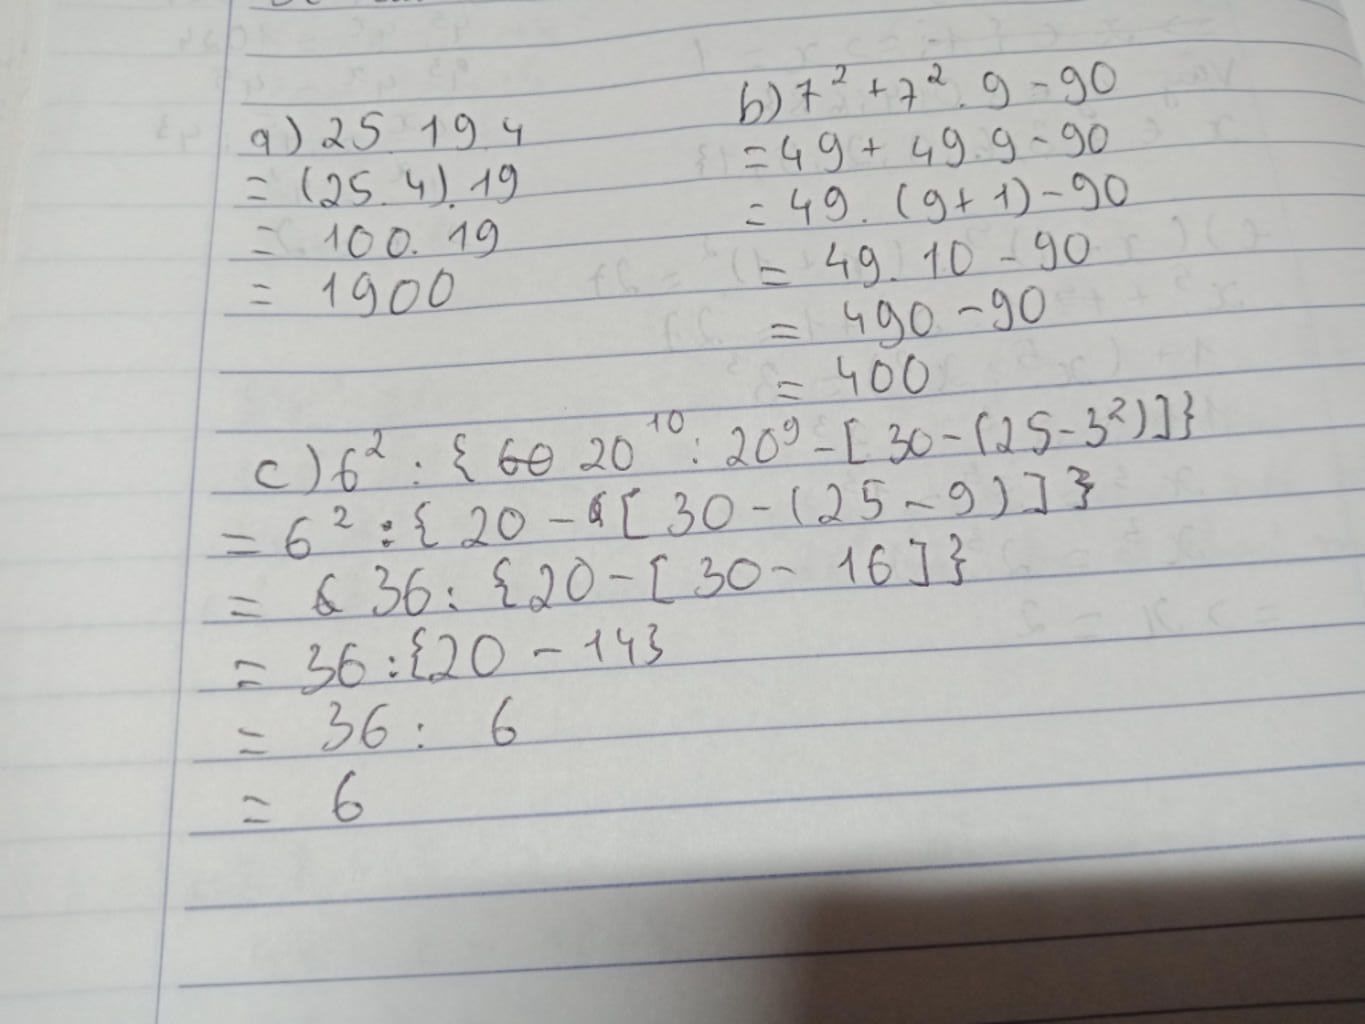 a) 25 . 19 . 4
= (25 . 4) . 19
= 100 . 19
= 1900
b) 7² + 7² . 9 - 90
= 49 + 49 . 9 - 90
= 49 . (9 + 1) - 90
= 49 . 10 - 90
= 490 - 90
= 400
c) 6² : { 20¹⁰ : 20⁹ - [ 30 - (25 - 3²) ] }
= 6² : { 20 - [ 30 - (25 - 9) ] }
= 36 : { 20 - [ 30 - 16 ] }
= 36 : { 20 - 14 }
= 36 : 6
= 6